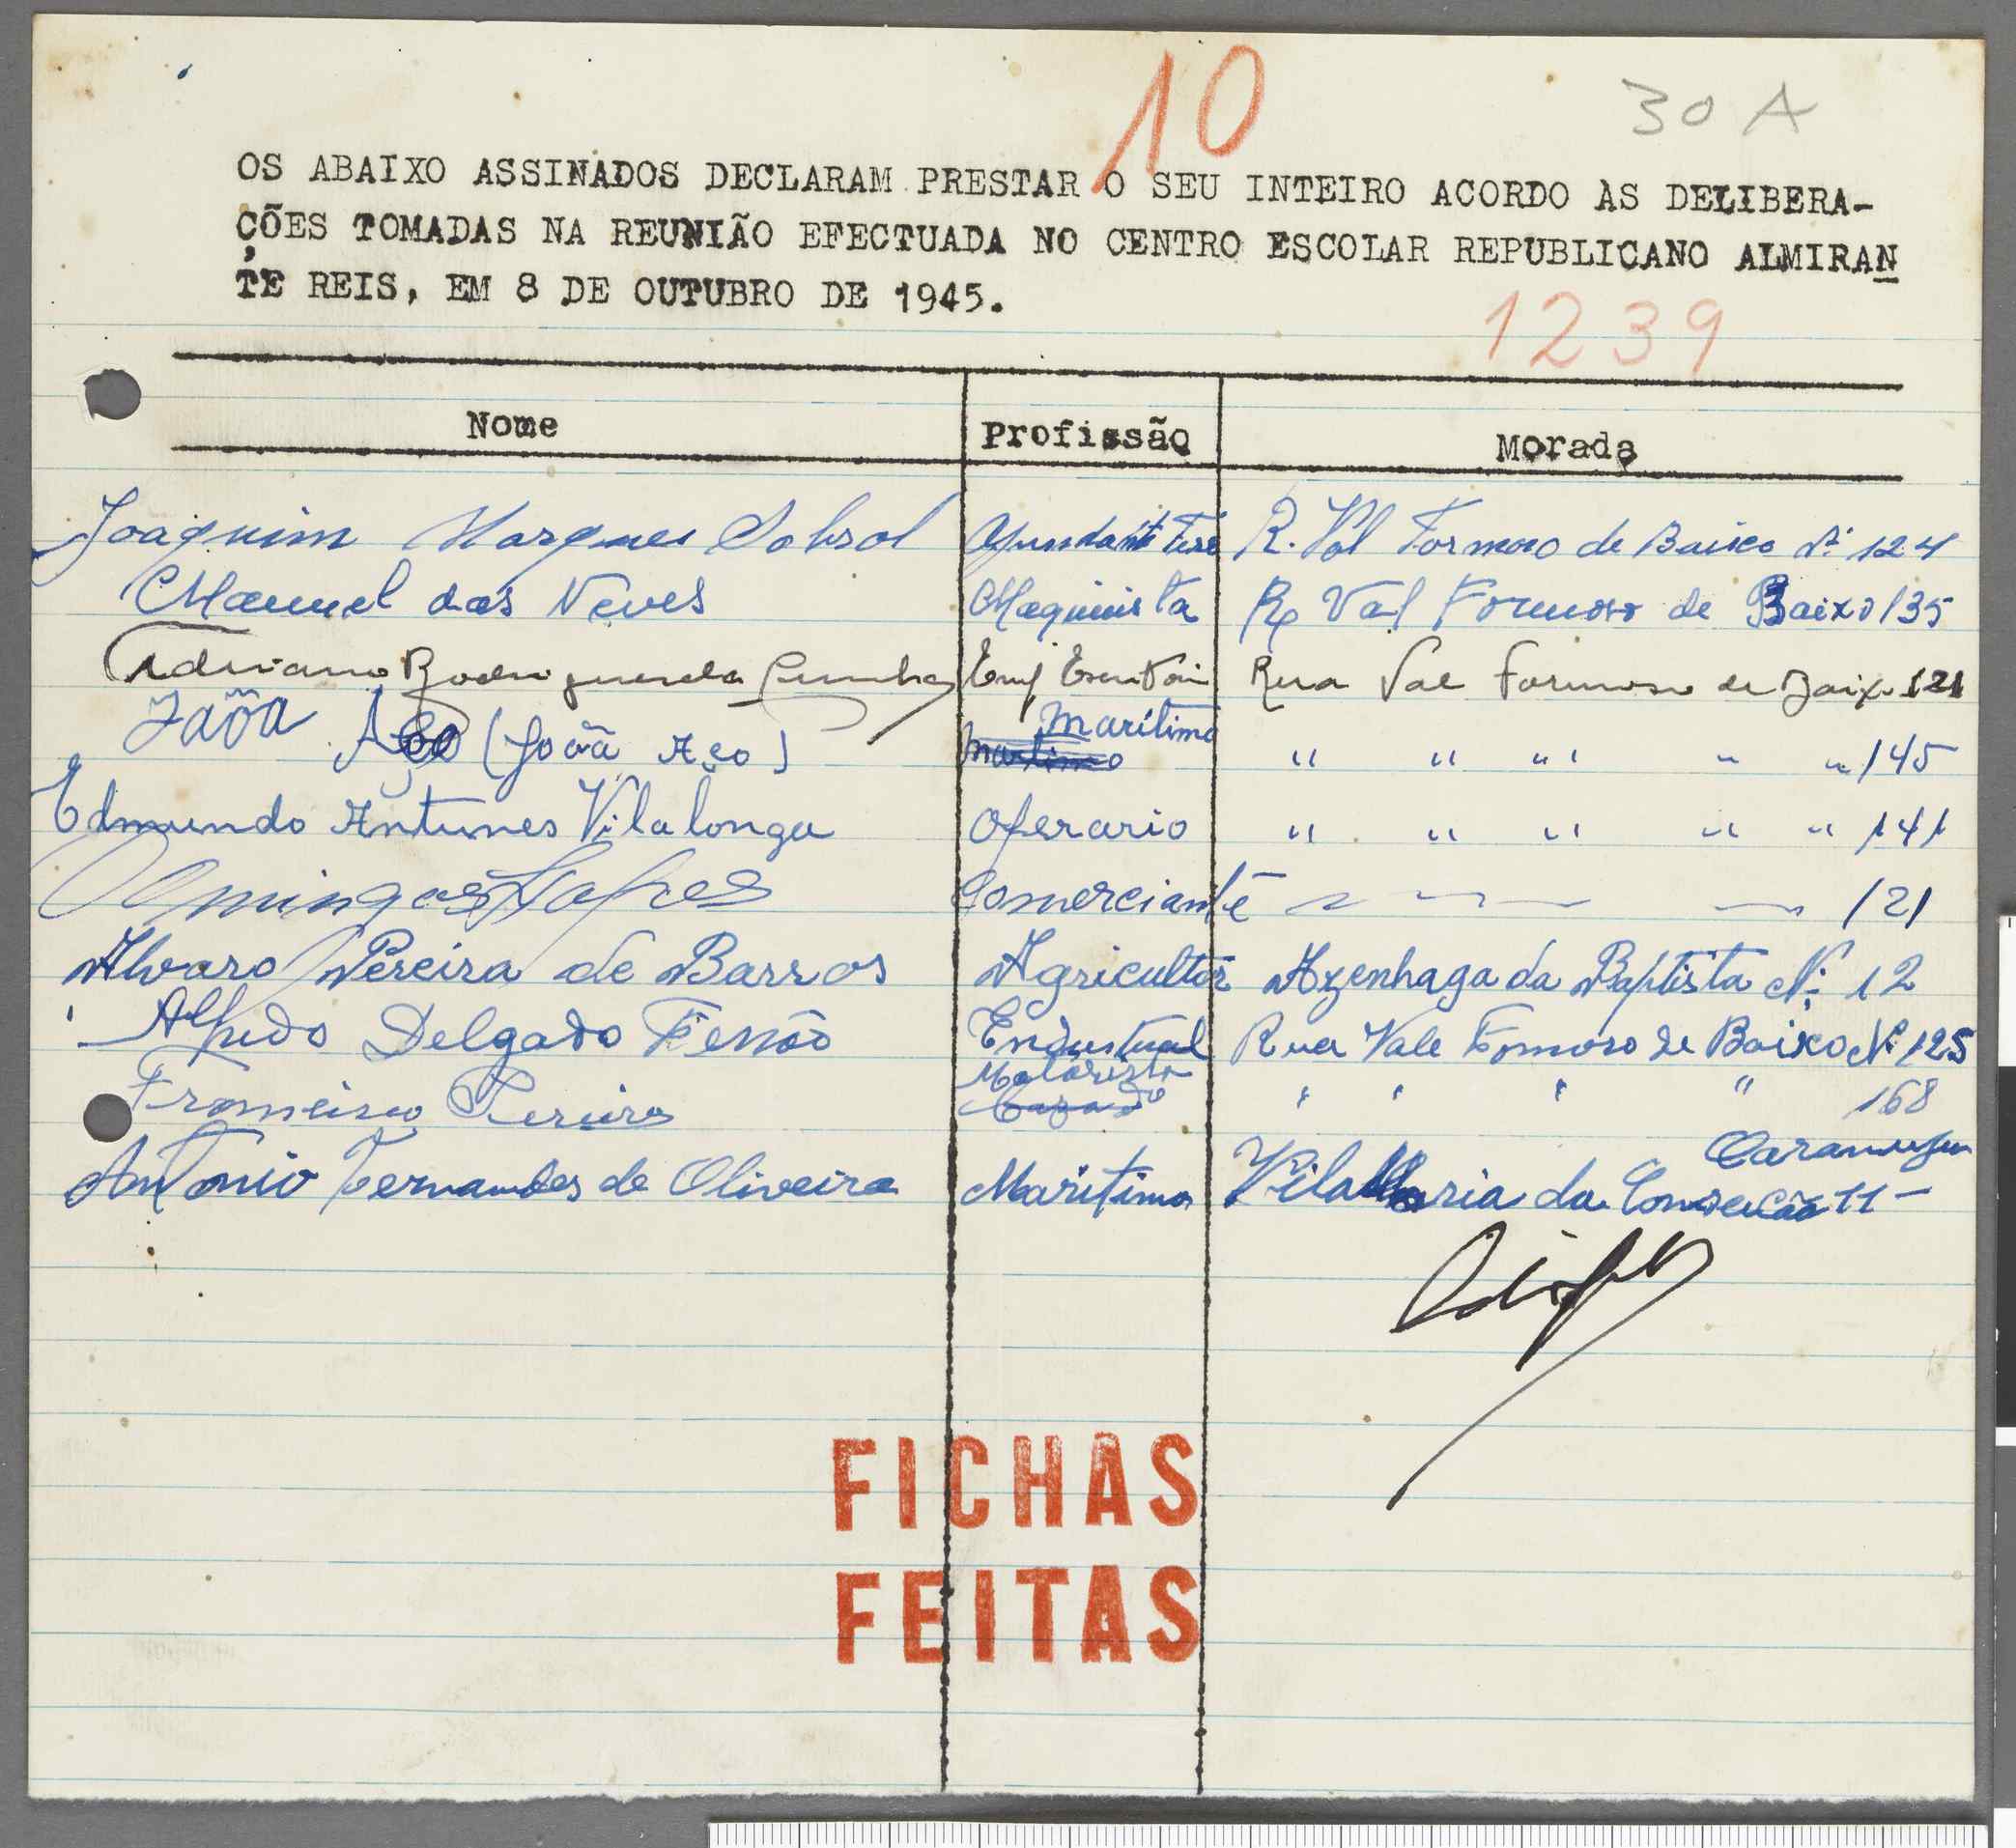 10
30 A
OS ABAIXO ASSINADOS DECLARAM PRESTAR O SEU INTEIRO ACORDO AS DELIBERA-
ÇÕES TOMADAS NA REUNIÃO EFECTUADA NO CENTRO ESCOLAR REPUBLICANO ALMIRAN
TE REIS, EM 8 DE OUTUBRO DE 1945.
1239
Nome Profissão Morada
Joaquim Marques Sobral R. Val Formoso de Baixo Nº 124
Manuel das Neves Maquinista R. Val Formoso de Baixo 135
Adriano Rodrigues da Cunha Emp Escritorio Rua Val Formoso de Baixo 121
João Aço (João Aço) Marítimo " " " " " 145
Edmundo Antunes Vilalonga Operario " " " " " 141
Domingos Lopes Comerciante 121
Alvaro Pereira de Barros Agricultor Azenhaga da Baptista Nº 12
Alfredo Delgado Endustrial Rua Vale Fomoso de Baixo Nº 125
Francisco Pereira Motorista " " " " 168
Antonio Fernandes de Oliveira Maritimo Vila Maria da Conseicão 11 -
FICHAS
FEITAS